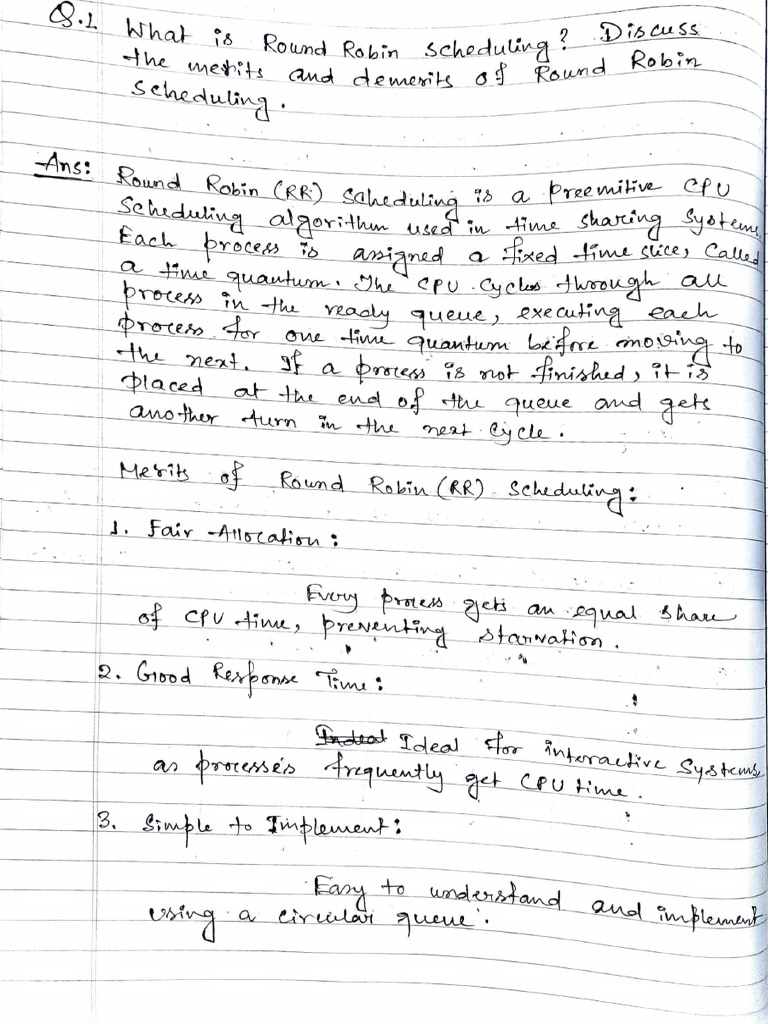 Q.1 What is Round Robin scheduling? Discuss
the merits and demerits of Round Robin
scheduling.
Ans: Round Robin (RR) Scheduling is a Preemitive CPU
Scheduling algorithm used in time sharing Systems.
Each process is assigned a fixed time slice, Called
a time quantum. The CPU Cycles through all
process in the ready queue, executing each
process for one time quantum before moving to
the next. If a process is not finished, it is
placed at the end of the queue and gets
another turn in the next Cycle.
Merits of Round Robin (RR) Scheduling:
1. Fair Allocation:
Every process gets an equal share
of CPU time, preventing starvation.
2. Good Response Time:
Ideal for interactive Systems,
as processes frequently get CPU time.
3. Simple to Implement:
Easy to understand and implement
using a circular queue.